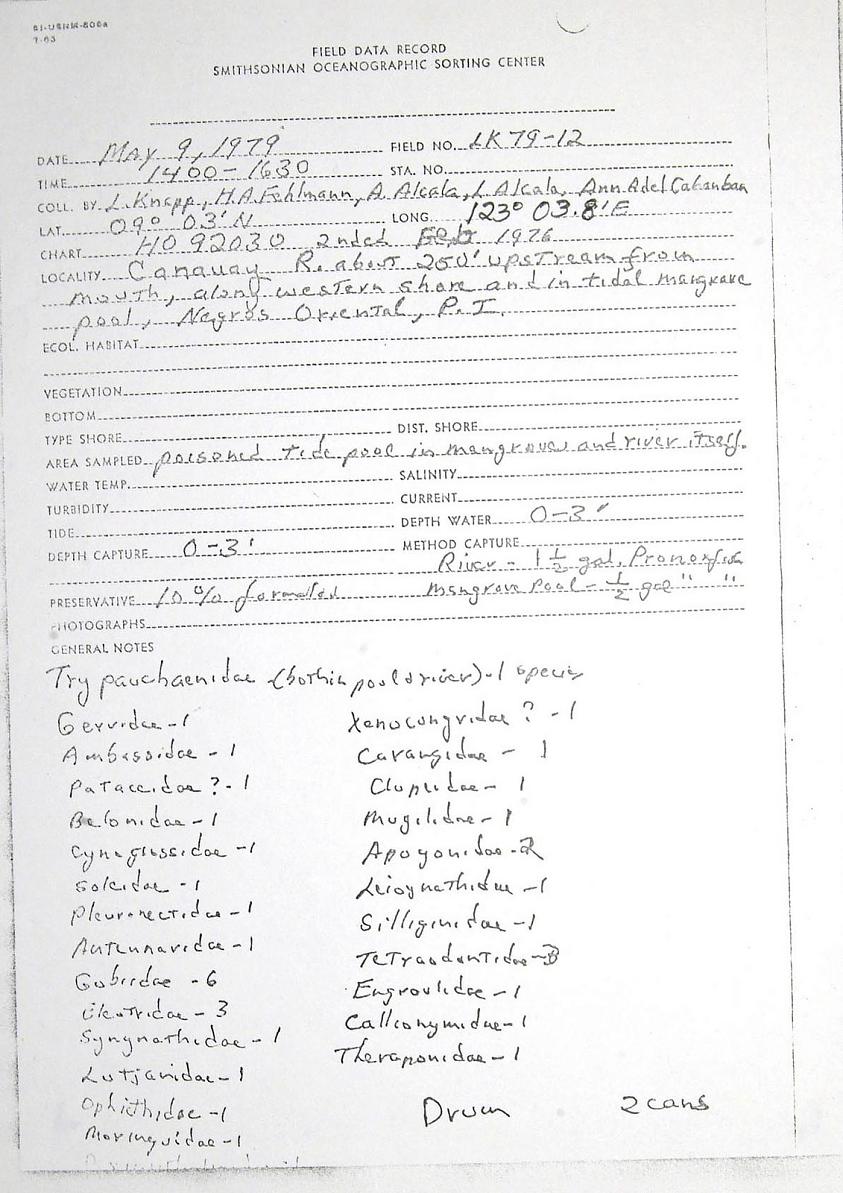 SI-USNM-506a
7-63
FIELD DATA RECORD
SMITHSONIAN OCEANOGRAPHIC SORTING CENTER
DATE May 9, 1979 FIELD NO. LK79-12
TIME 1400-1630 STA. NO.
COLL. BY L. Knapp, H.A. Fehlmann, A. Alcala, L. Alcala, Ann Adel Cabanban
LAT. 09° 03'N LONG. 123° 03.8'E
CHART HO 92030 2nd ed Feb 1976
LOCALITY Canauay R. about 250' upstream from
mouth, along western shore and in tidal mangrove
pool, Negros Oriental, P.I.
ECOL. HABITAT
VEGETATION
BOTTOM
TYPE SHORE DIST. SHORE
AREA SAMPLED poisoned tide pool in mangroves and river itself.
WATER TEMP. SALINITY
TURBIDITY CURRENT
TIDE DEPTH WATER 0-3'
DEPTH CAPTURE 0-3' METHOD CAPTURE
River - 1 1/2 gal. Pronoxfish
PRESERVATIVE 10% formalled Mangrove Pool - 1/2 gal " "
PHOTOGRAPHS
GENERAL NOTES
Trypauchaenidae (both in pool & river) - 1 species
Gerridae - 1 Xenocongridae ? - 1
Ambassidae - 1 Carangidae - 1
Pataecidae ? - 1 Clupidae - 1
Belonidae - 1 Mugilidae - 1
Cynoglossidae - 1 Apogonidae - 2
Soleidae - 1 Leiognathidae - 1
Pleuronectidae - 1 Silliginidae - 1
Antennaridae - 1 Tetraodontidae - 3
Gobiidae - 6 Engraulidae - 1
Eleotridae - 3 Callionymidae - 1
Syngnathidae - 1 Theraponidae - 1
Lutjanidae - 1
Ophicthidae - 1 Drum 2 cans
Moringuidae - 1